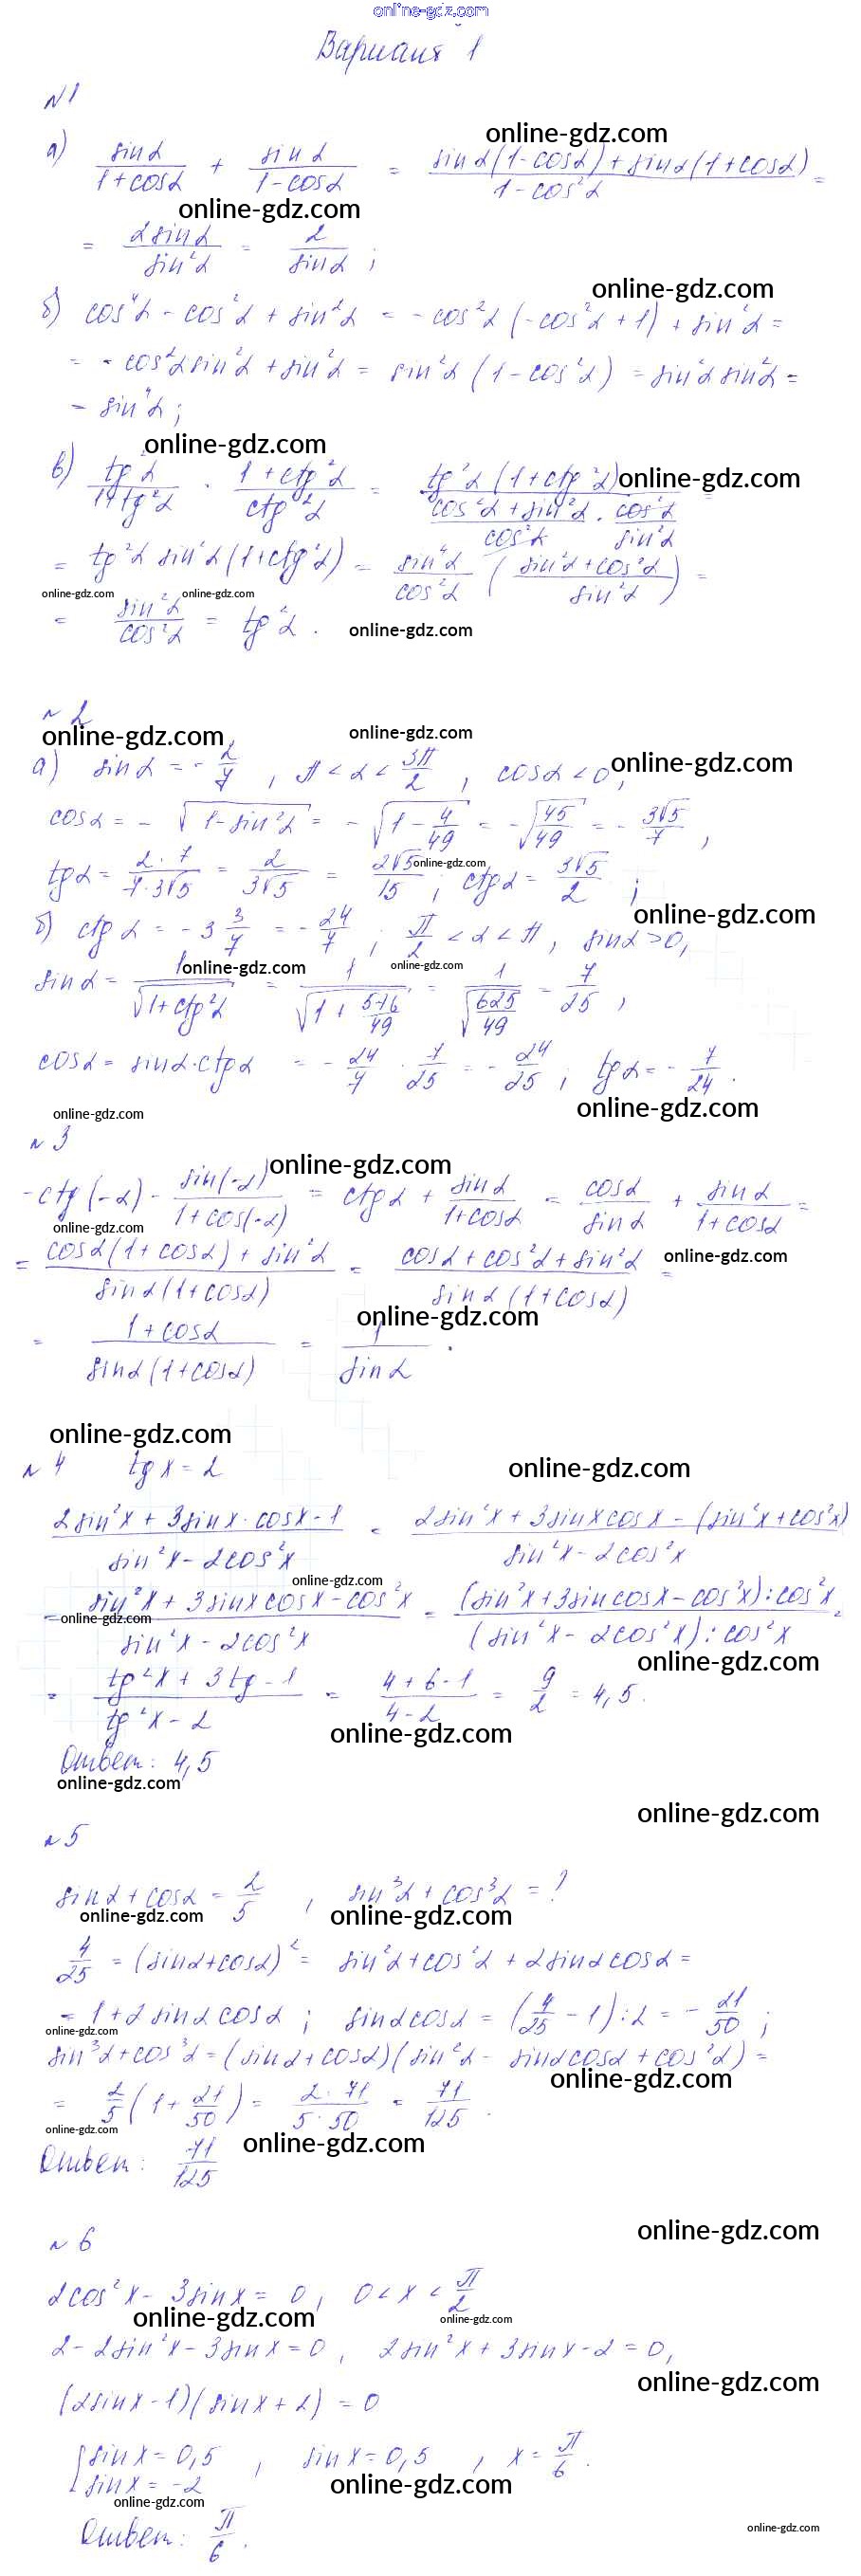 online-gdz.com
Вариант 1
№1
online-gdz.com
а) sinα/(1+cosα) + sinα/(1-cosα) = (sinα(1-cosα)+sinα(1+cosα))/(1-cos²α) =
online-gdz.com
= 2sinα/sin²α = 2/sinα ;
online-gdz.com
б) cos⁴α - cos²α + sin²α = -cos²α(-cos²α+1) + sin²α =
= -cos²α sin²α + sin²α = sin²α(1-cos²α) = sin²α sin²α =
= sin⁴α;
online-gdz.com
в) tg²α/(1+tg²α) · (1+ctg²α)/ctg²α = tg²α(1+ctg²α)/((cos²α+sin²α)/cos²α · cos²α/sin²α) =
online-gdz.com
= tg²α sin²α(1+ctg²α) = sin⁴α/cos²α ((sin²α+cos²α)/sin²α) =
online-gdz.com online-gdz.com
= sin²α/cos²α = tg²α.
online-gdz.com
№2
online-gdz.com online-gdz.com
а) sinα = -2/7, π<α<3π/2, cosα<0,
online-gdz.com
cosα = -√(1-sin²α) = -√(1-4/49) = -√(45/49) = -3√5/7,
tgα = 2·7/(7·3√5) = 2/(3√5) = 2√5/15; ctgα = 3√5/2;
online-gdz.com
online-gdz.com
б) ctgα = -3 3/7 = -24/7; π/2<α<π, sinα>0,
online-gdz.com online-gdz.com
sinα = 1/√(1+ctg²α) = 1/√(1+576/49) = 1/√(625/49) = 7/25,
cosα = sinα·ctgα = -24/7 · 7/25 = -24/25; tgα = -7/24.
online-gdz.com online-gdz.com
№3
online-gdz.com
-ctg(-α) - sin(-α)/(1+cos(-α)) = ctgα + sinα/(1+cosα) = cosα/sinα + sinα/(1+cosα) =
online-gdz.com
= (cosα(1+cosα)+sin²α)/(sinα(1+cosα)) = (cosα+cos²α+sin²α)/(sinα(1+cosα)) =
online-gdz.com
online-gdz.com
= (1+cosα)/(sinα(1+cosα)) = 1/sinα.
online-gdz.com
№4 tgx=2
online-gdz.com
(2sin²x+3sinx·cosx-1)/(sin²x-2cos²x) = (2sin²x+3sinxcosx-(sin²x+cos²x))/(sin²x-2cos²x)
online-gdz.com
= (sin²x+3sinxcosx-cos²x)/(sin²x-2cos²x) = ((sin²x+3sincosx-cos²x):cos²x)/((sin²x-2cos²x):cos²x) =
online-gdz.com
online-gdz.com
= (tg²x+3tg-1)/(tg²x-2) = (4+6-1)/(4-2) = 9/2 = 4,5.
online-gdz.com
Ответ: 4,5
online-gdz.com
online-gdz.com
№5
sinα+cosα = 2/5, sin³α+cos³α = ?
online-gdz.com online-gdz.com
4/25 = (sinα+cosα)² = sin²α+cos²α+2sinαcosα =
= 1+2sinαcosα; sinαcosα = (4/25-1):2 = -21/50;
online-gdz.com
sin³α+cos³α = (sinα+cosα)(sin²α-sinαcosα+cos²α) =
online-gdz.com
= 2/5(1+21/50) = 2·71/(5·50) = 71/125.
online-gdz.com online-gdz.com
Ответ: 71/125
online-gdz.com
№6
2cos²x-3sinx=0, 0<x<π/2
online-gdz.com online-gdz.com
2-2sin²x-3sinx=0, 2sin²x+3sinx-2=0,
online-gdz.com
(2sinx-1)(sinx+2)=0
[sinx=0,5 , sinx=0,5 , x=π/6.
sinx=-2
online-gdz.com
online-gdz.com
Ответ: π/6.
online-gdz.com